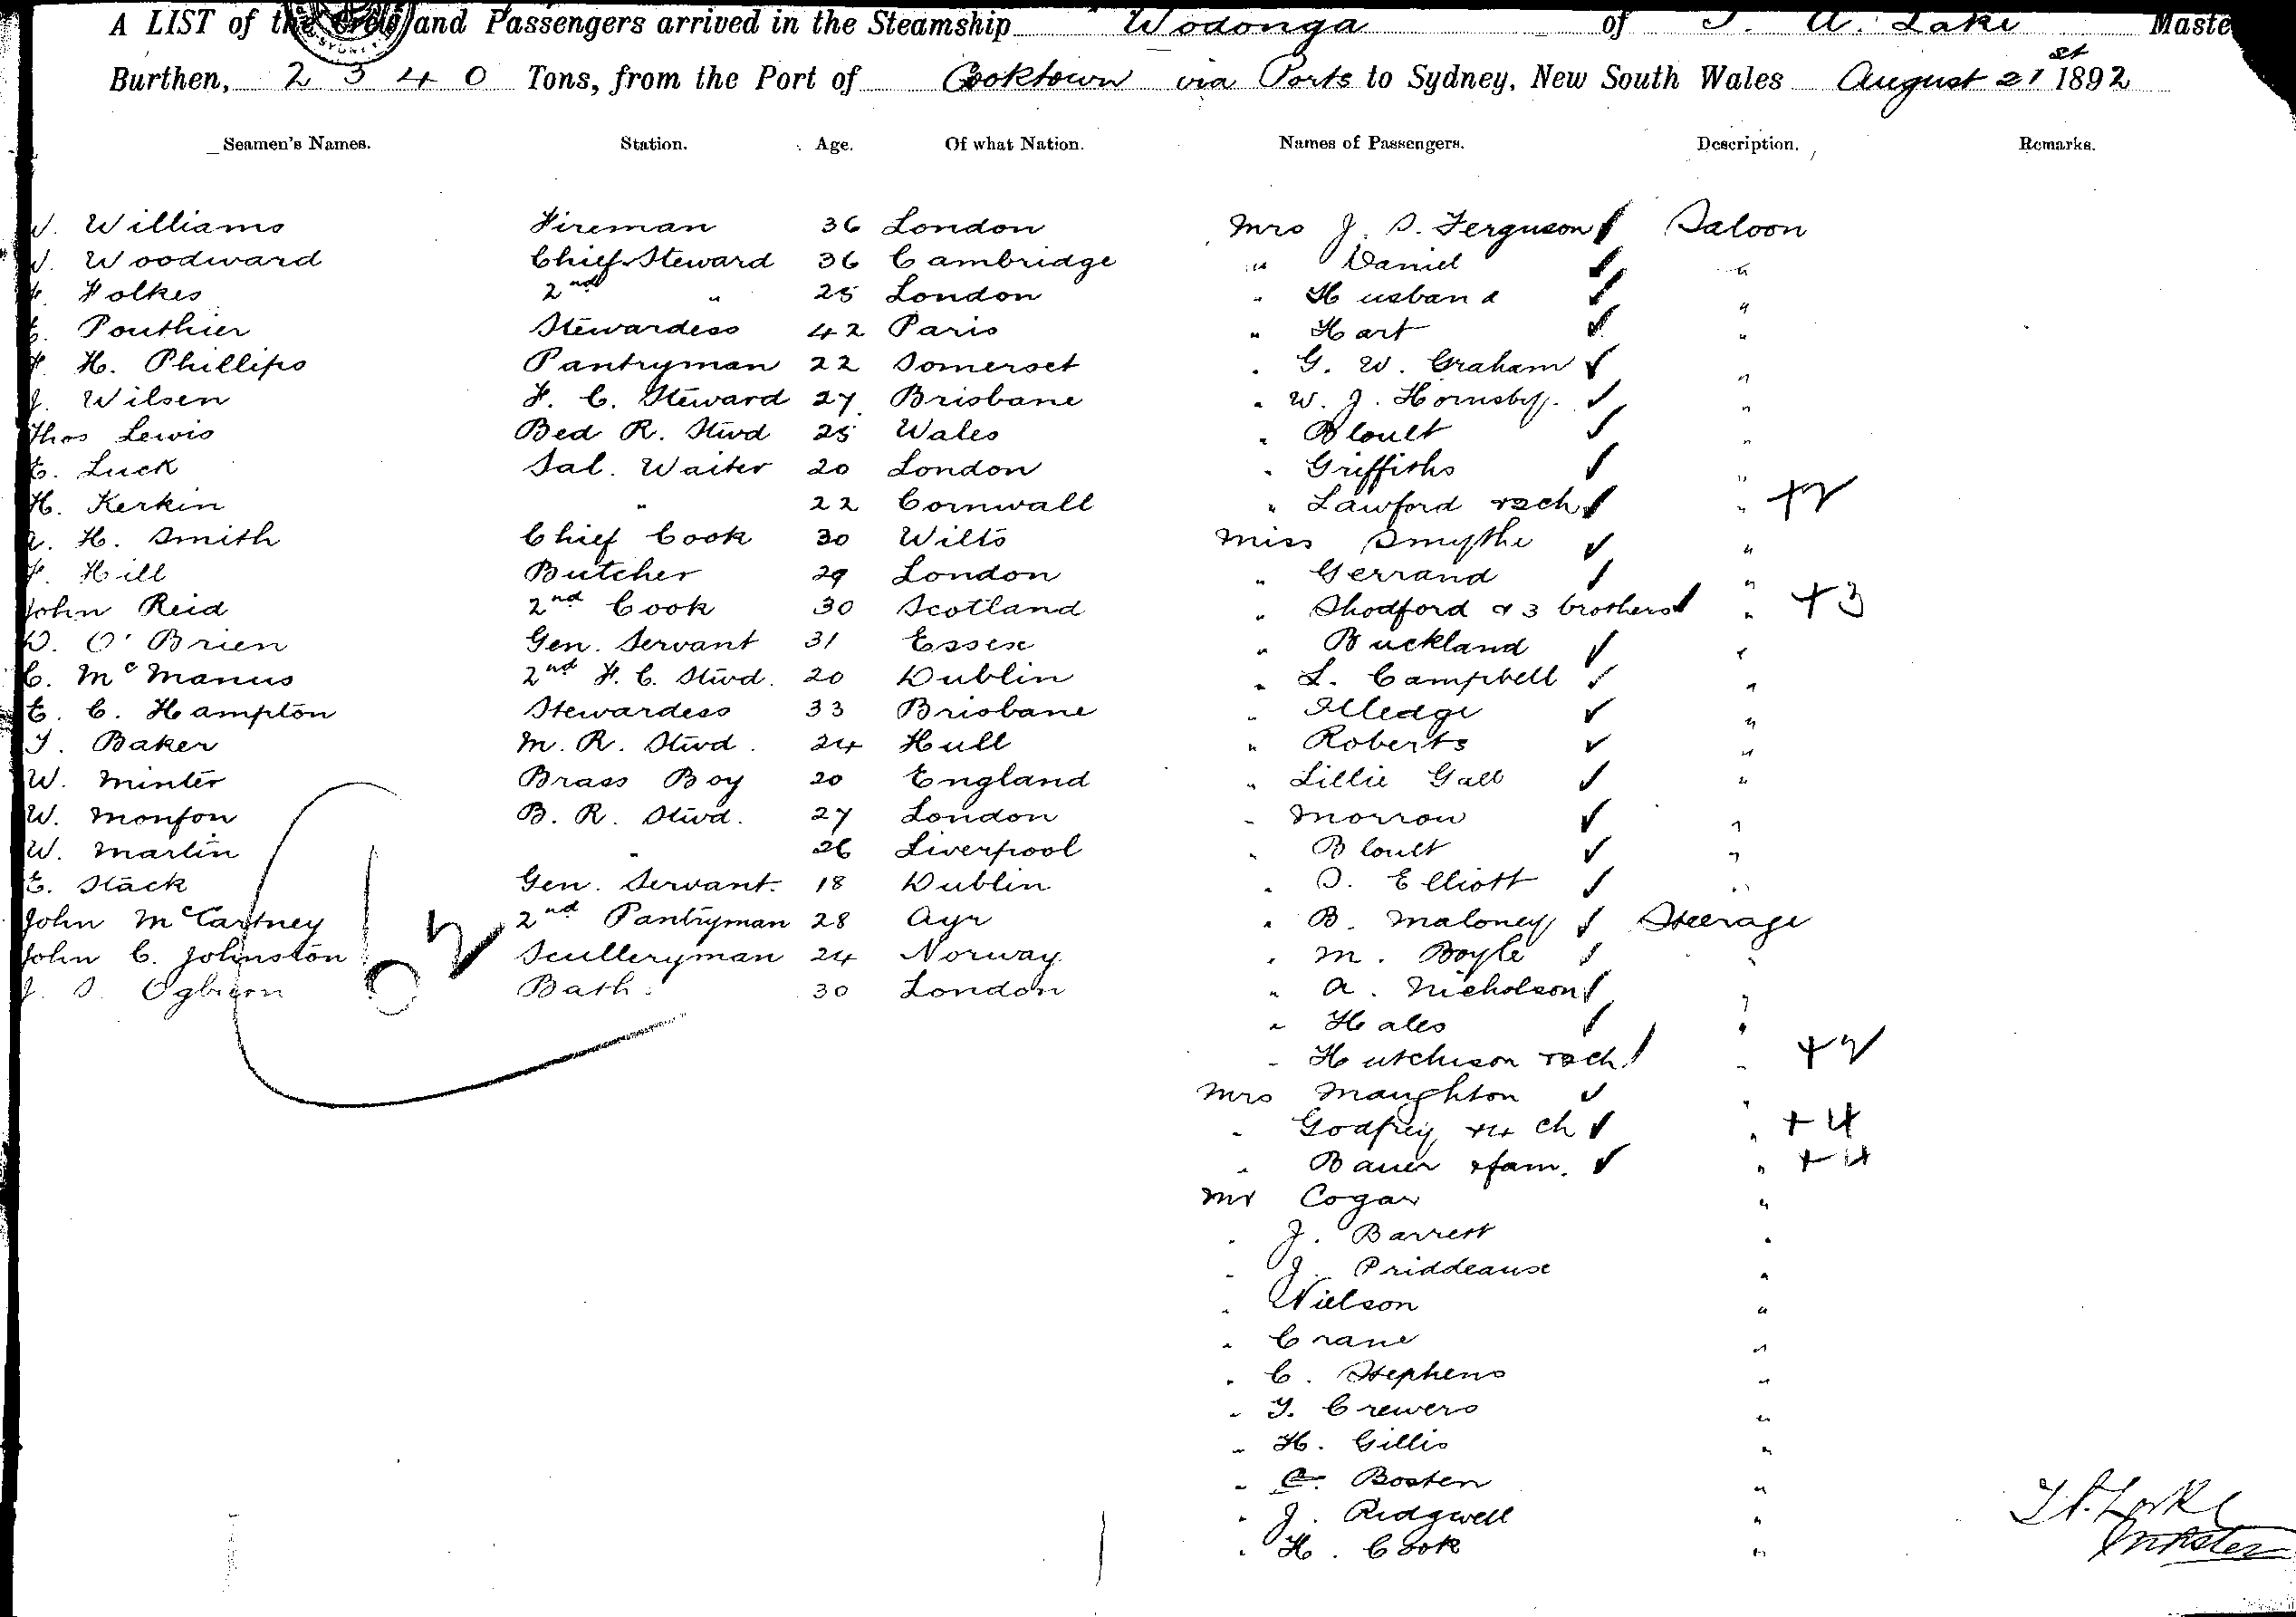 A LIST of the Crew and Passengers arrived in the Steamship Wodonga of T. A. Lake Maste
Burthen, 2340 Tons, from the Port of Cooktown via Ports to Sydney, New South Wales August 21st 1892
Seamen's Names. Station. Age. Of what Nation. Names of Passengers. Description. Remarks.
W. Williams Fireman 36 London Mrs J. S. Ferguson Saloon
Woodward Chief Steward 36 Cambridge " Daniel "
Folkes 2nd " 25 London " Husband "
Pouthier Stewardess 42 Paris " Hart "
H. Phillips Pantryman 22 Somerset " G. W. Graham "
J. Wilsen F. C. Steward 27 Brisbane " W. J. Hornsby. "
Thos Lewis Bed R. Stwd 25 Wales " Bloult "
E. Luck Sal. Waiter 20 London " Griffiths "
H. Kerkin " 22 Cornwall " Lawford + 2 ch " +2
A. H. Smith Chief Cook 30 Wilts Miss Smythe "
F. Hill Butcher 29 London " Gerrand "
John Reid 2nd Cook 30 Scotland " Shodford & 3 brothers " +3
D. O'Brien Gen. Servant 31 Essex " Buckland "
C. McManus 2nd F. C. Stwd. 20 Dublin " L. Campbell "
E. C. Hampton Stewardess 33 Brisbane " Illedge "
T. Baker M. R. Stwd. 24 Hull " Roberts "
W. Minter Brass Boy 20 England " Lillie Gall "
W. Monfon B. R. Stwd. 27 London " Morrow "
W. Martin " 26 Liverpool " Bloult "
E. Stack Gen. Servant. 18 Dublin " S. Elliott "
John McCartney 2nd Pantryman 28 Ayr " B. Maloney Steerage
John C. Johnston Sculleryman 24 Norway " M. Boyle "
J. S. Ogburn Bath. 30 London " A. Nicholson "
" Hales "
" Hutchison + 2 ch " +2
Mrs Maughton "
" Godfrey + 4 ch " +4
" Bauer & fam. " +4
Mr Cogar "
" J. Barrett "
" J. Priddeause "
" Nielson "
" Crane "
" C. Stephens "
" T. Crewers "
" H. Gillis "
" C. Bosten "
" J. Ridgwell "
" H. Cook "
T. A. Lake
Master